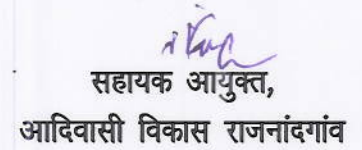 सहायक आयुक्त,
आदिवासी विकास राजनांदगांव